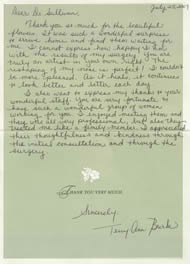 July
Dear Dr. Sullivan,
Thank you so much for the beautiful
flowers. It was such a wonderful surprise
to arrive home and find them waiting for
me. I cannot express how happy I am
with the results of my surgery. You are
truly an artist in your own right. The
reshaping of my nose is perfect! I couldn't
be more pleased. As it heals, it continues
to look better and better each day.
I also want to express my thanks to your
wonderful staff. You are very fortunate to
have such a wonderful group of women
working for you. I enjoyed meeting them and
they are all very professional, but also they
treated me like a family member. I appreciated
their thoughtfulness and kindness through
the initial consultation and through the
surgery.
THANK YOU VERY MUCH.
Sincerely,
Terry Ann Burke